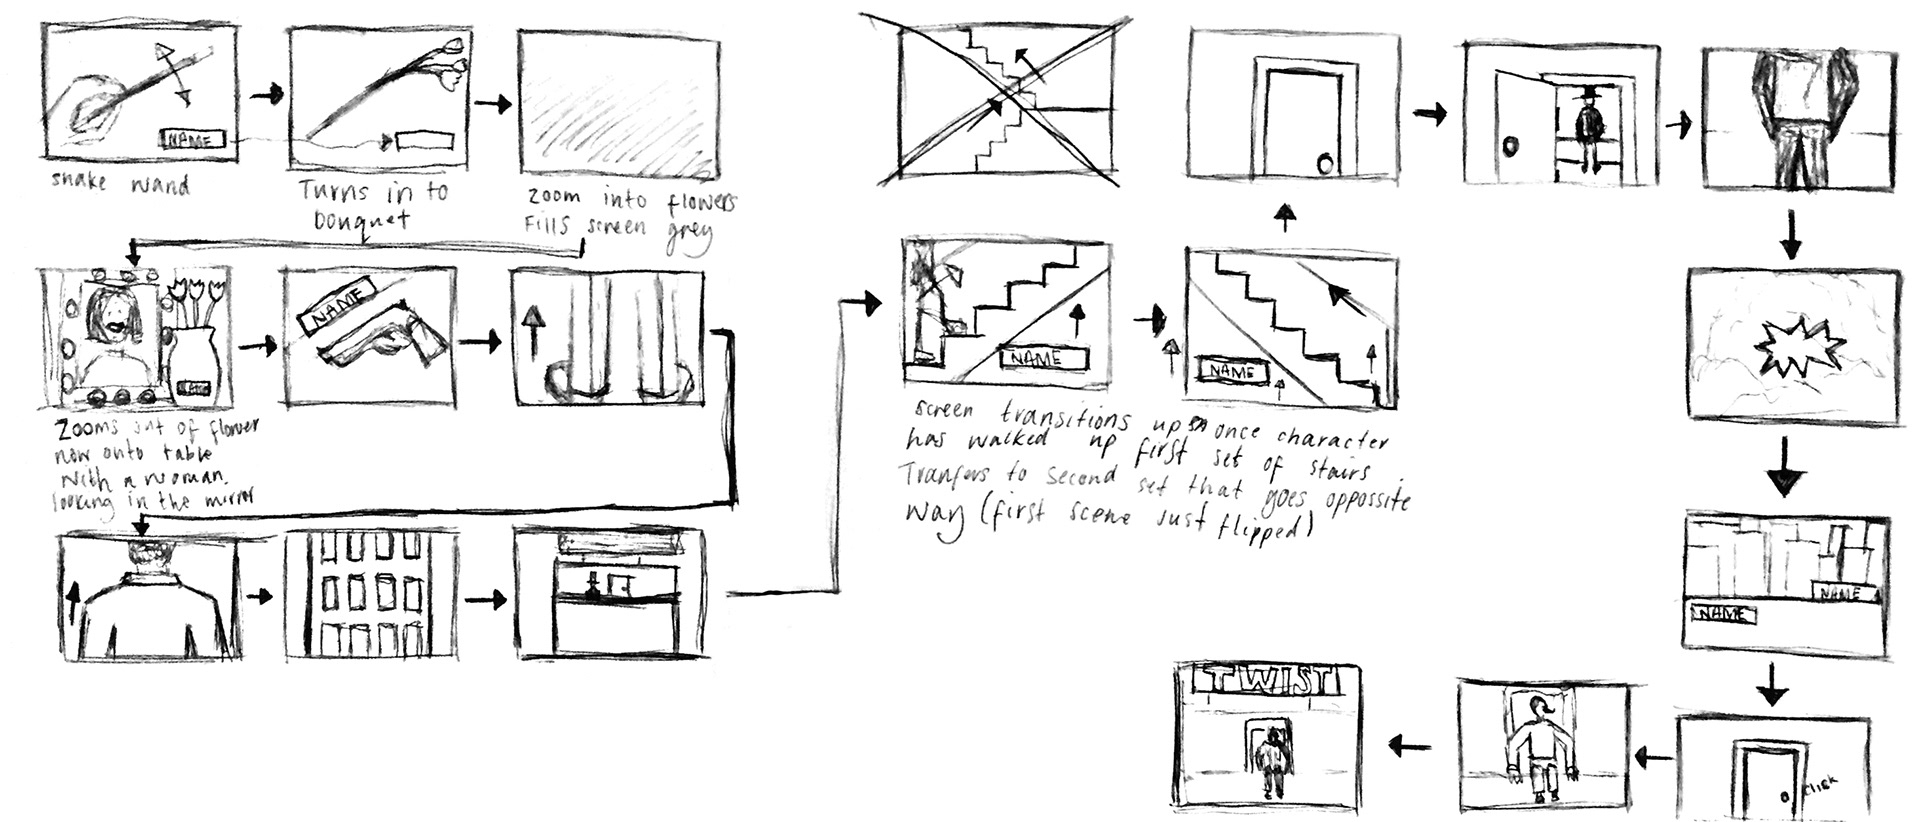 NAME
shake wand
Turns in to
bouquet
zoom into flowers
Fills screen grey
NAME
Zooms out of flower
now onto table
with a woman
looking in the mirror
NAME
NAME
NAME
screen transitions up once character
has walked up first set of stairs.
Transfers to second set that goes oppossite
way (first scene just flipped)
NAME
NAME
click
TWIST